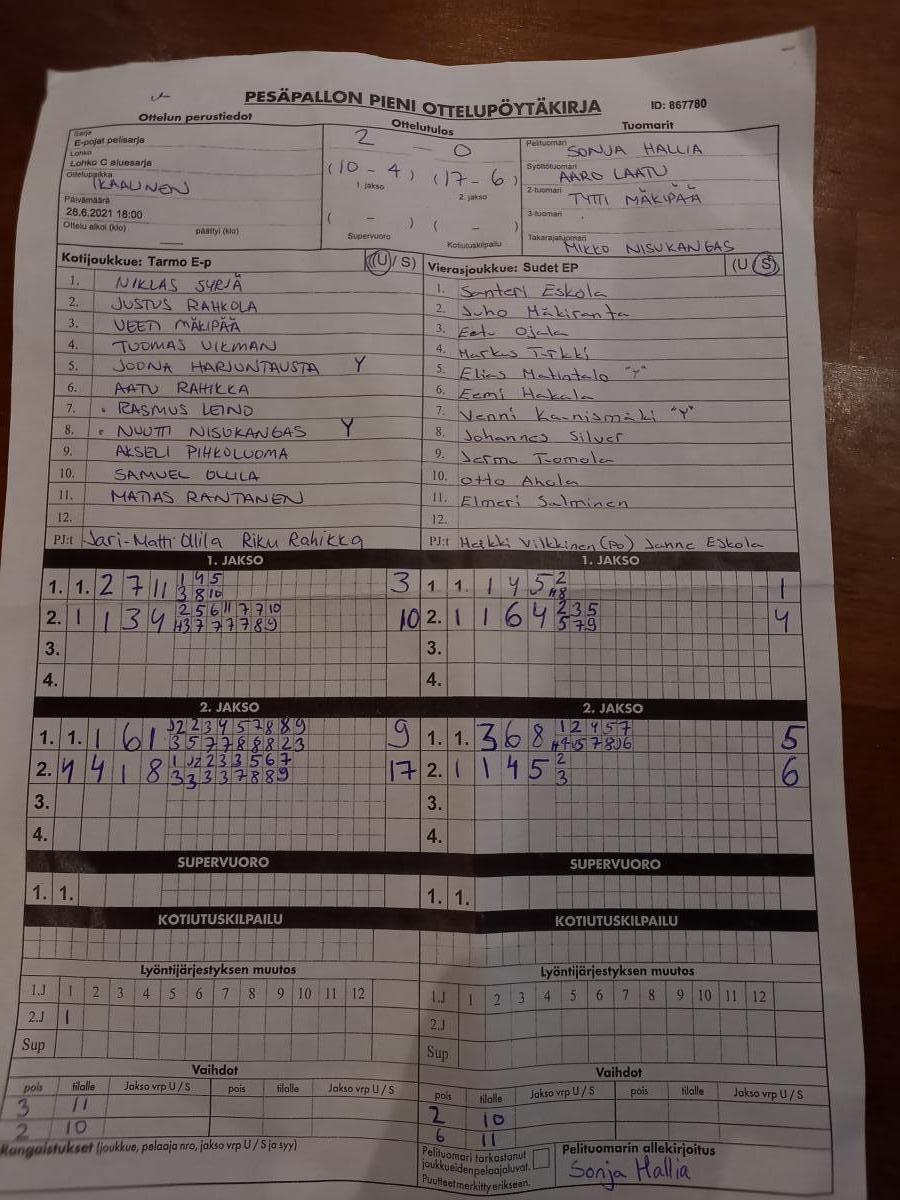 PESÄPALLON PIENI OTTELUPÖYTÄKIRJA ID: 867780
Ottelun perustiedot Ottelutulos Tuomarit
Sarja
E-pojat pelisarja
Lohko
Lohko C aluesarja
Ottelupaikka
IKAALINEN
Päivämäärä
28.6.2021 18:00
Ottelu alkoi (klo) päättyi (klo)
2 - 0
(10 - 4) (17 - 6)
1. jakso 2. jakso
( - ) ( - )
Supervuoro Kotiutuskilpailu
Pelituomari SONJA HALLIA
Syöttötuomari AARO LAATU
2-tuomari TYTTI MÄKIPÄÄ
3-tuomari
Takarajatuomari MIKKO NISUKANGAS
Kotijoukkue: Tarmo E-p (U / S)
1. NIKLAS SYRJÄ
2. JUSTUS RAHKOLA
3. VEETI MÄKIPÄÄ
4. TUOMAS VIKMAN
5. JOONA HARJUNTAUSTA Y
6. AATU RAHIKKA
7. RASMUS LEINO
8. NUUTTI NISUKANGAS Y
9. AKSELI PIHKOLUOMA
10. SAMUEL OLLILA
11. MATIAS RANTANEN
12.
PJ:t Jari-Matti Ollila Riku Rahikka
Vierasjoukkue: Sudet EP (U / S)
1. Santeri Eskola
2. Juho Mäkiranta
3. Eetu Ojala
4. Markus Tirkki
5. Elias Matintalo "Y"
6. Eemi Hakala
7. Venni Kainismäki "Y"
8. Johannes Silver
9. Jermu Tuomola
10. Otto Ahola
11. Elmeri Salminen
12.
PJ:t Heikki Vilkkinen (PO) Janne Eskola
1. JAKSO 1. JAKSO
1. 1. 2 7 11 1 4 5 3 1. 1. 1 4 5 2 1
3 8 10
2. 1 1 3 4 2 5 6 11 7 7 10 10 2. 1 1 6 4 2 3 5 4
5 7 9
3. 3.
4. 4.
2. JAKSO 2. JAKSO
1. 1. 1 6 1 9 1. 1. 3 6 8 1 2 4 5 7 5
2. 4 4 1 8 17 2. 1 1 4 5 2 6
3
3. 3.
4. 4.
SUPERVUORO SUPERVUORO
1. 1. 1. 1.
KOTIUTUSKILPAILU KOTIUTUSKILPAILU
Lyöntijärjestyksen muutos Lyöntijärjestyksen muutos
1.J 1 2 3 4 5 6 7 8 9 10 11 12 1.J 1 2 3 4 5 6 7 8 9 10 11 12
2.J 1 2.J
Sup Sup
Vaihdot Vaihdot
pois tilalle Jakso vrp U / S pois tilalle Jakso vrp U / S pois tilalle Jakso vrp U / S pois tilalle Jakso vrp U / S
3 11 2 10
2 10 6 11
Rangaistukset (joukkue, pelaaja nro, jakso vrp U / S ja syy)
Pelituomari tarkastanut
joukkueiden pelaajaluvat.
Puutteet merkitty erikseen.
Pelituomarin allekirjoitus
Sonja Hallia